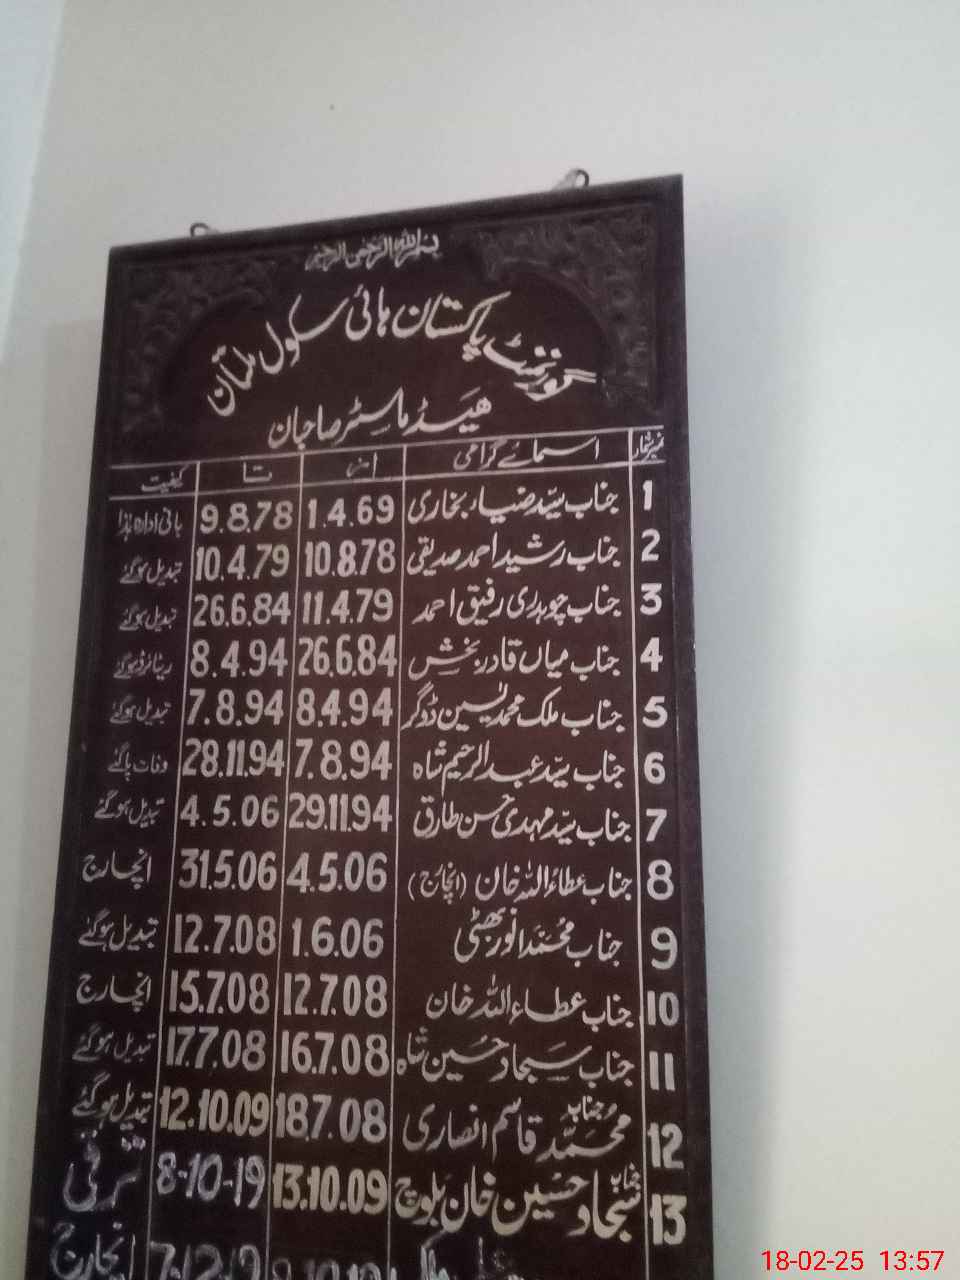 بسم الله الرحمن الرحيم
گورنمنٹ پاکستان ہائی سکول ملتان
ھیڈ ماسٹر صاحبان
نمبر شمار اسمائے گرامی از تا کیفیت
1 جناب سیّد ضیاء بخاری 1.4.69 9.8.78 بانی ادارہ ہذا
2 جناب رشید احمد صدیقی 10.8.78 10.4.79 تبدیل ہوگئے
3 جناب چوہدری رفیق احمد 11.4.79 26.6.84 تبدیل ہوگئے
4 جناب میاں قادر بخش 26.6.84 8.4.94 ریٹائرڈ ہوگئے
5 جناب ملک محمد یٰسین ڈوگر 8.4.94 7.8.94 تبدیل ہوگئے
6 جناب سیّد عبدالرحیم شاہ 7.8.94 28.11.94 وفات پاگئے
7 جناب سیّد مہدی حسن طارق 29.11.94 4.5.06 تبدیل ہوگئے
8 جناب عطاءاللہ خان (انچارج) 4.5.06 31.5.06 انچارج
9 جناب محمد انور بھٹی 1.6.06 12.7.08 تبدیل ہوگئے
10 جناب عطاءاللہ خان 12.7.08 15.7.08 انچارج
11 جناب سجاد حسین شاہ 16.7.08 17.7.08 تبدیل ہوگئے
12 جناب محمّد قاسم انصاری 18.7.08 12.10.09 تبدیل ہوگئے
13 جناب سجاد حسین خان بلوچ 13.10.09 8-10-19 ترقی
انچارج
18-02-25 13:57